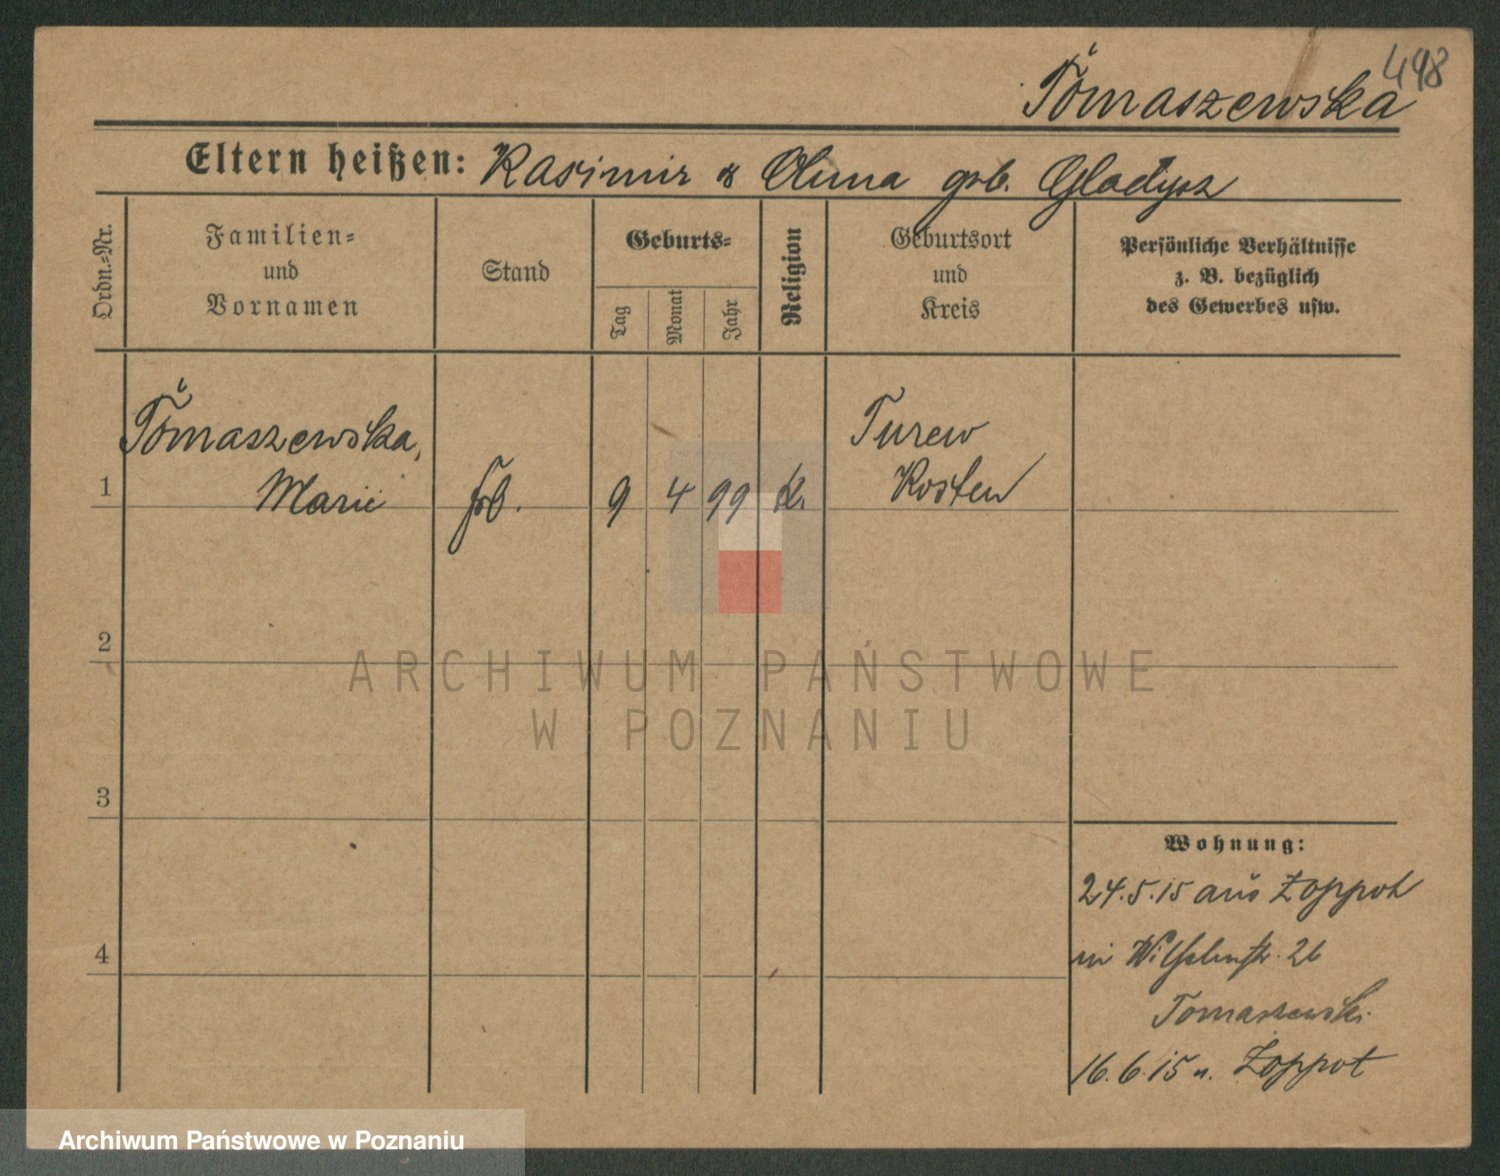 448
Tomaszewska
Eltern heißen: Kasimir & Anna geb. Gladysz
Ordn.-Nr.
Familien-
und
Vornamen
Stand
Geburts-
Tag
Monat
Jahr
Religion
Geburtsort
und
Kreis
Persönliche Verhältnisse
z. B. bezüglich
des Gewerbes usw.
Tomaszewska,
1 Marie frb. 9 4 99 K. Turew
Kosten
2
3
4
Wohnung:
24.5.15 aus Zoppot
in Wilhelmstr. 26
Tomaszewski
16.6.15 n. Zoppot
ARCHIWUM PAŃSTWOWE
W POZNANIU
Archiwum Państwowe w Poznaniu